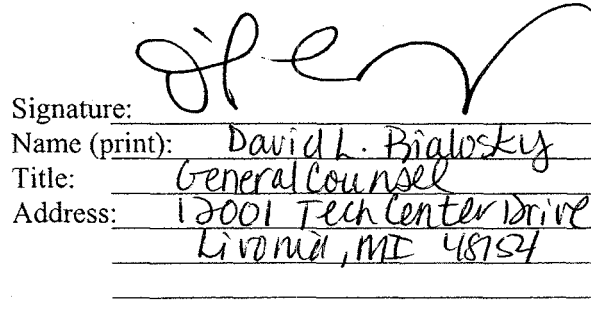 Signature:
Name (print): David L. Bialosky
Title: General Counsel
Address: 12001 Tech Center Drive
Livonia, MI 48154